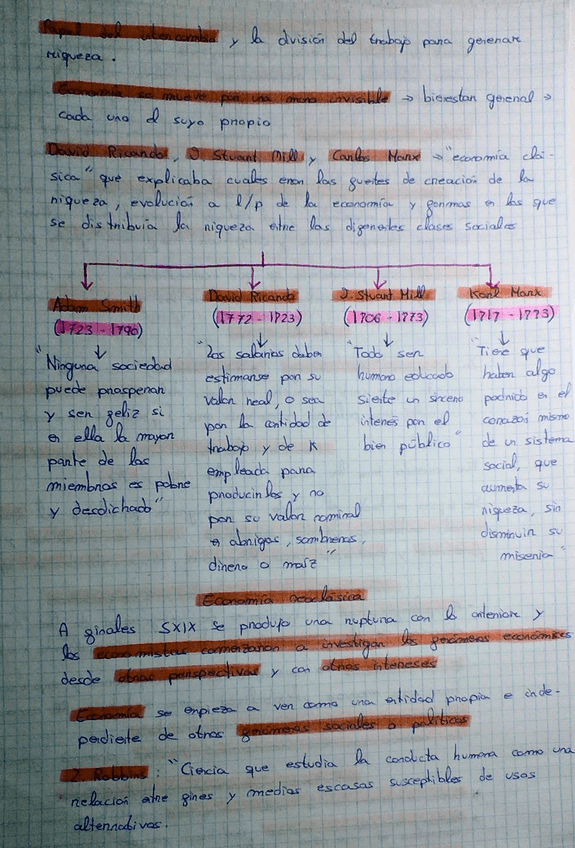 del intercambio y la división del trabajo para generar
riqueza.
Economía se mueve por una mano invisible → bienestar general →
cada uno el suyo propio
David Ricardo, J. Stuart Mill y Carlos Marx → "economía clá-
sica" que explicaba cuales eran las fuentes de creación de la
riqueza, evolución a l/p de la economía y formas en las que
se distribuía la riqueza entre las diferentes clases sociales
Adam Smith
(1723-1790)
"Ninguna sociedad
puede prosperar
y ser feliz si
en ella la mayor
parte de los
miembros es pobre
y desdichado"
David Ricardo
(1772-1723)
"Los salarios deben
estimarse por su
valor real, o sea
por la cantidad de
trabajo y de K
empleada para
producirlos y no
por su valor nominal
en abrigos, sombreros,
dinero o maíz"
J. Stuart Mill
(1706-1773)
"Todo ser
humano educado
siente un sincero
interés por el
bien público"
Karl Marx
(1717-1773)
"Tiene que
haber algo
podrido en el
corazón mismo
de un sistema
social, que
aumenta su
riqueza, sin
disminuir su
miseria"
Economía neoclásica
A finales SXIX se produjo una ruptura con lo anterior y
los economistas comenzaron a investigar los fenómenos económicos
desde otras perspectivas y con otros intereses
Economía se empieza a ver como una entidad propia e inde-
pendiente de otros fenómenos sociales o políticos
L. Robbins: "Ciencia que estudia la conducta humana como una
relación entre fines y medios escasos susceptibles de usos
alternativos.